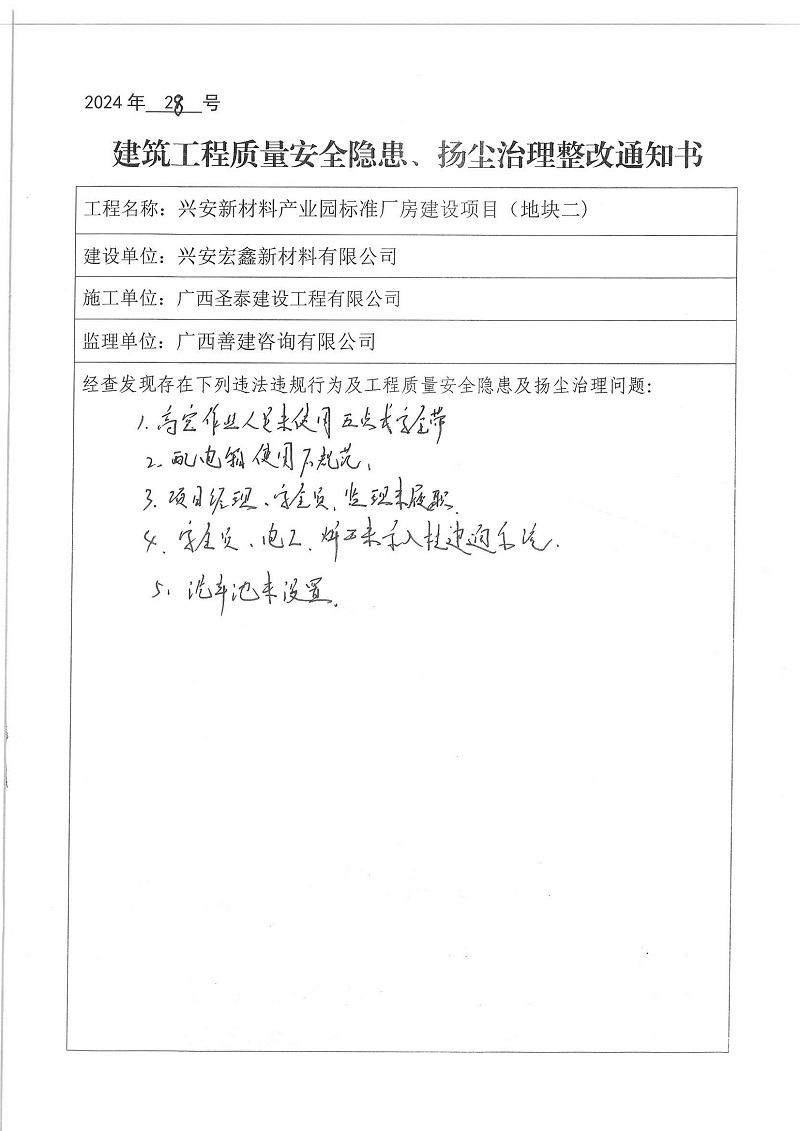 2024年 28 号
建筑工程质量安全隐患、扬尘治理整改通知书
工程名称：兴安新材料产业园标准厂房建设项目（地块二）
建设单位：兴安宏鑫新材料有限公司
施工单位：广西圣泰建设工程有限公司
监理单位：广西善建咨询有限公司
经查发现存在下列违法违规行为及工程质量安全隐患及扬尘治理问题：
1.高空作业人员未使用五点式安全带
2.配电箱使用不规范、
3.项目经理、安全员、监理未履职.
4.安全员、电工、焊工未录入桂建通系统.
5、洗车池未设置.